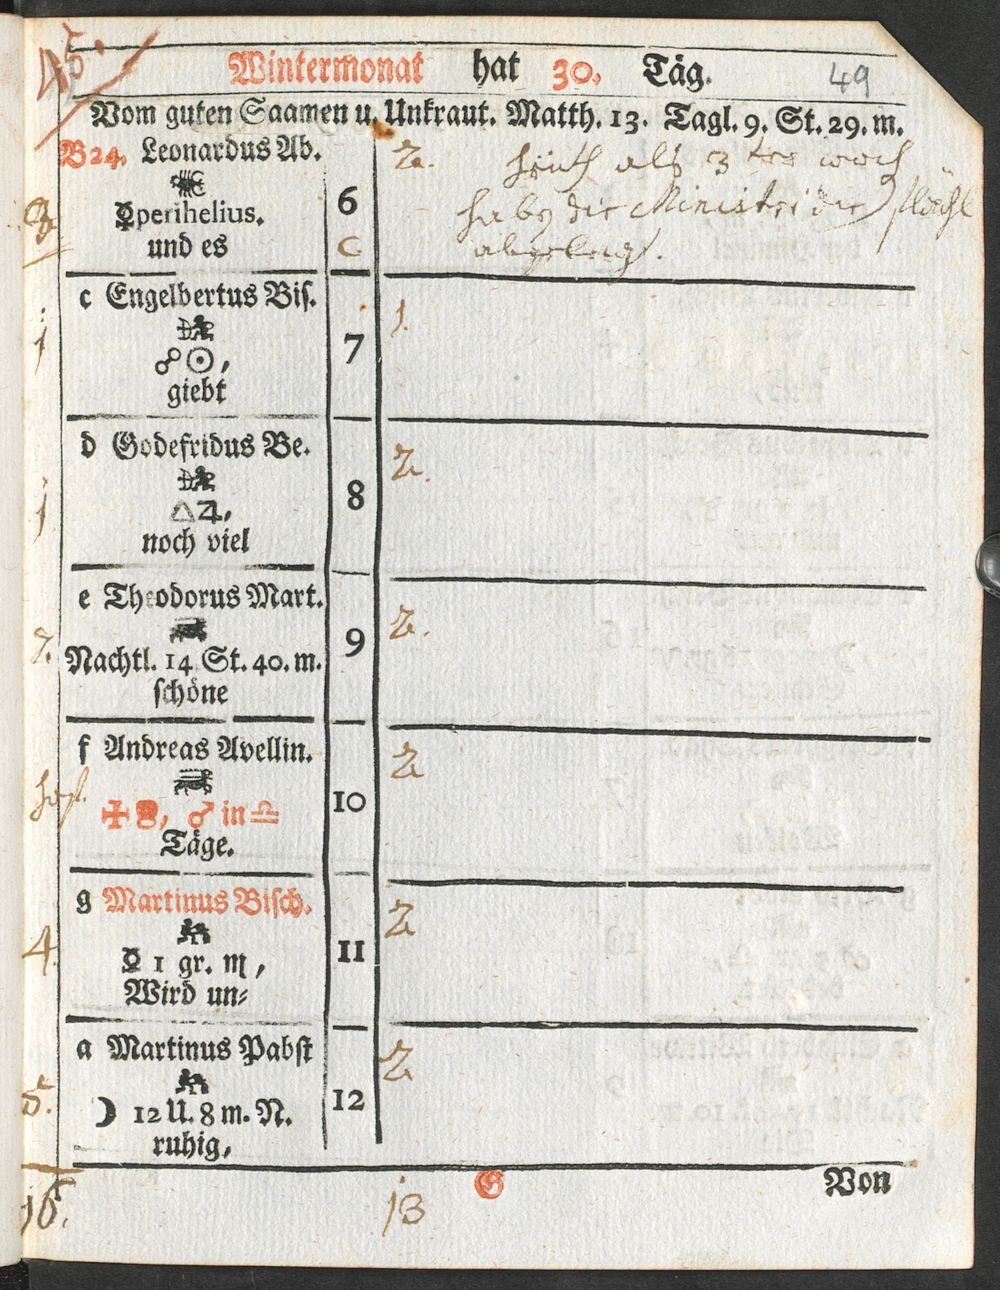 45.
Wintermonat hat 30. Täg.
49
Vom guten Saamen u. Unkraut. Matth. 13. Tagl. 9. St. 29. m.
B 24. Leonardus Ab.
☿ perihelius.
und es
6
C
2.
als 3
habe die
abgelegt.
c Engelbertus Bis.
☍ ☉,
giebt
7
1
1.
d Godefridus Be.
△ ♃,
noch viel
8
1
2.
e Theodorus Mart.
Nachtl. 14 St. 40. m.
schöne
9
2.
2.
f Andreas Avellin.
✠, ♂ in ♎
Täge.
10
2
g Martinus Bisch.
☿ 1 gr. ♏,
Wird un⸗
11
4.
2
a Martinus Pabst
☽ 12 U. 8 m. N.
ruhig,
12
5.
2
Von
13